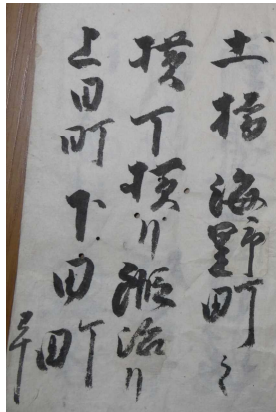 土橋 海野町
横丁横リ鍛治リ
上田町 下田町